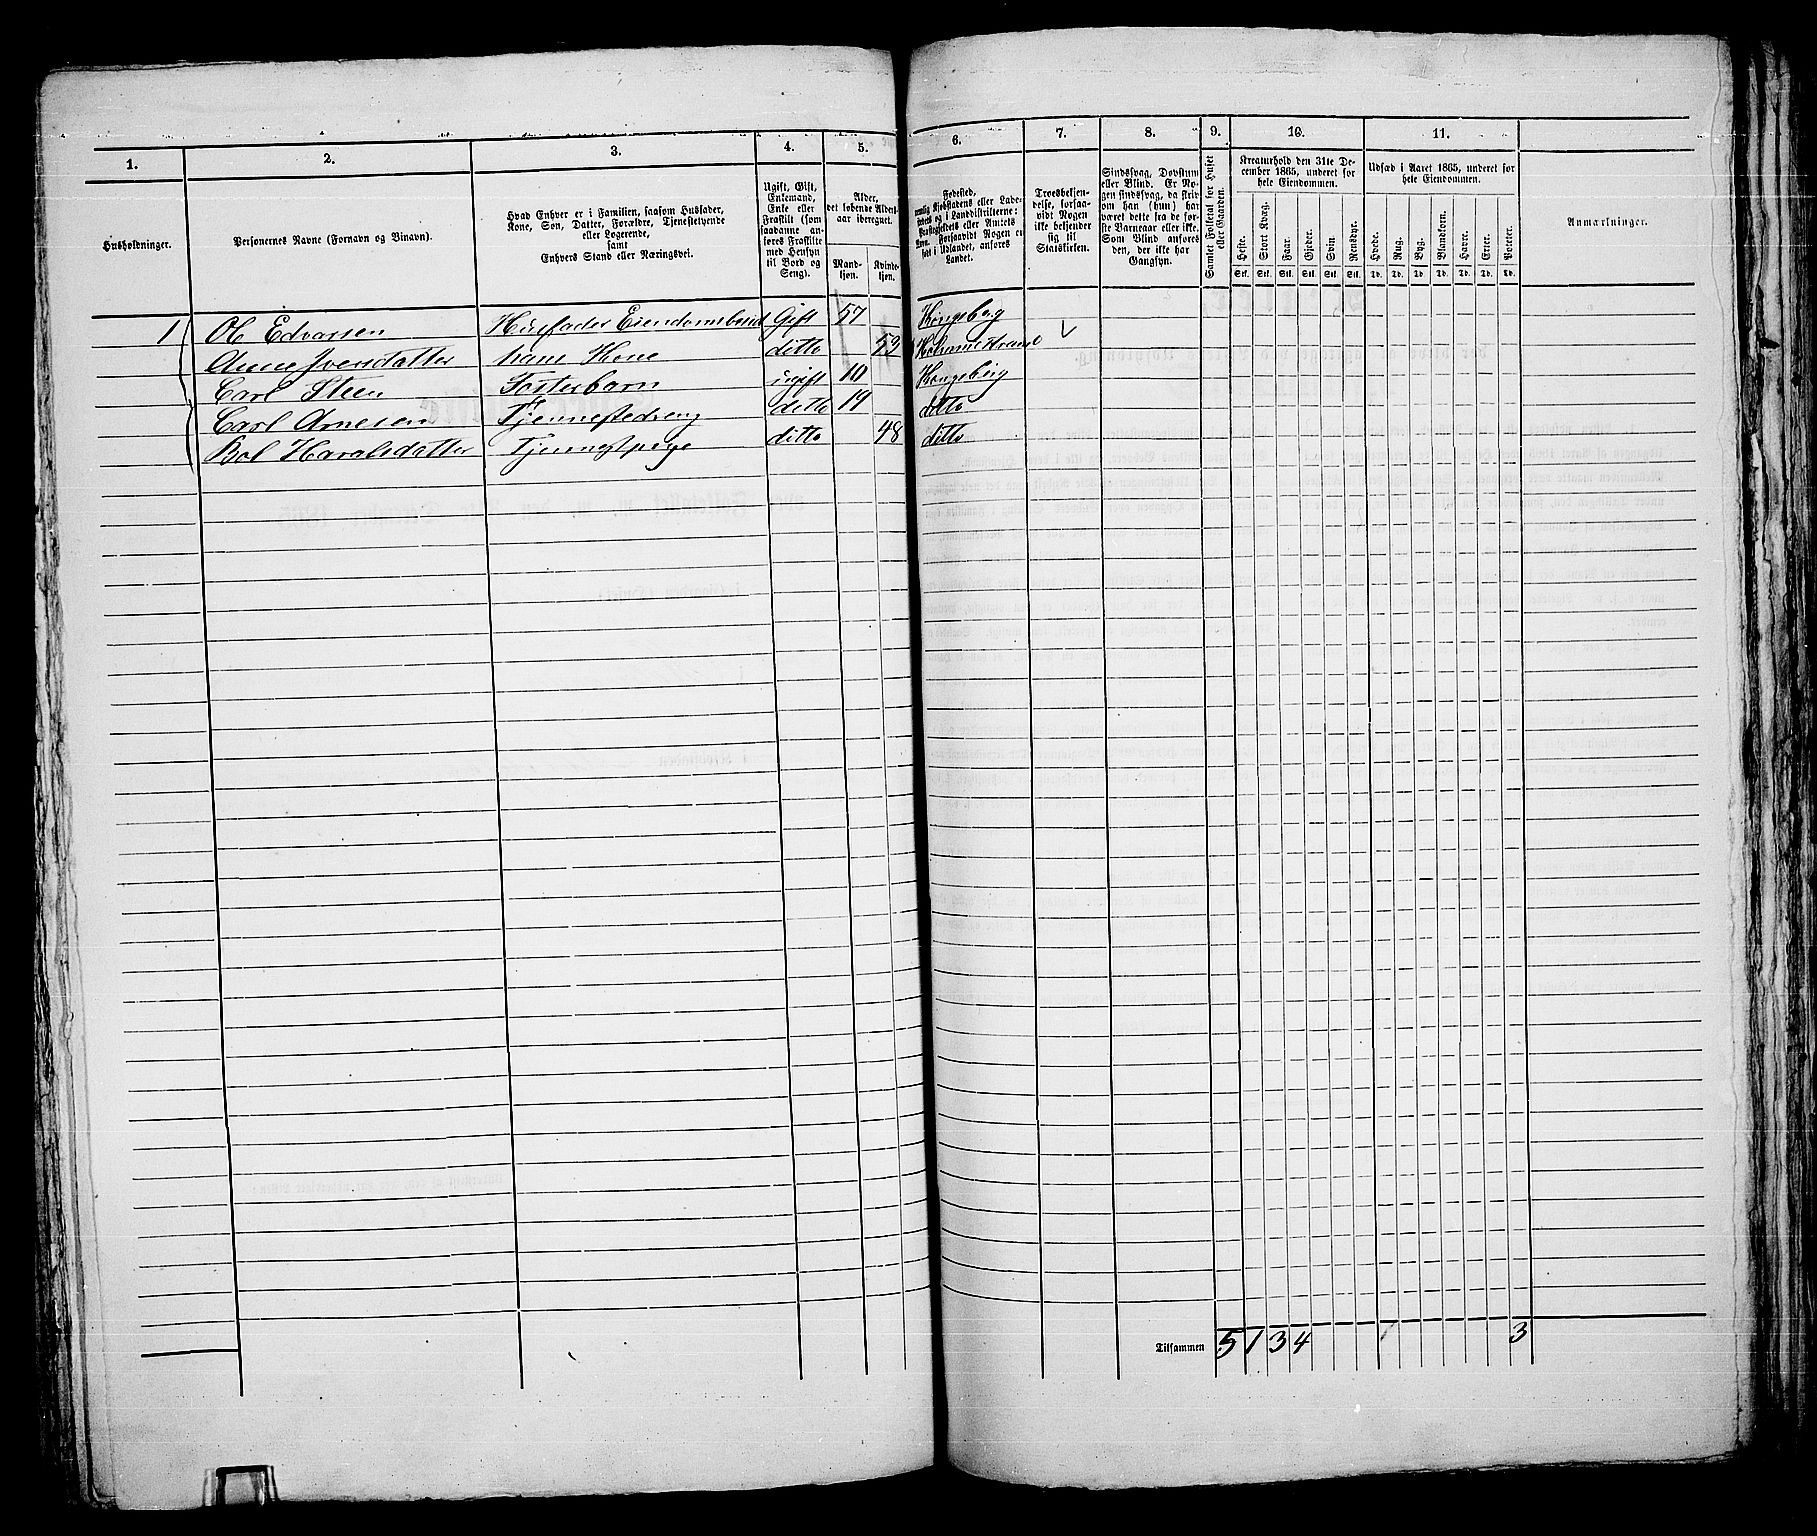 1.
2.
3.
4.
5.
6.
7.
8.
9.
10.
11.
Husholdninger.
Personernes Navne (Fornavn og Binavn).
Hvad Enhver er i Familien, saasom Husfader,
Kone, Søn, Datter, Forældre, Tjenstetyende
eller Logerende,
samt
Enhvers Stand eller Næringsvei.
Ugift, Gift,
Enkemand,
Enke eller
Fraskilt (som
saadanne an-
føres Fraskilte
med Hensyn
til Bord og
Seng).
Alder,
det løbende Alders-
aar iberegnet.
Mand-
kjøn.
Kvinde-
kjøn.
Fødested,
nemlig Kjøbstadens eller Lade-
stedets og i Landdistrikterne:
Præstegjeldets eller Amtets
Navn. Forsaavidt Nogen er
født i Udlandet, anføres
Landet.
Troesbekjen-
delse, forsaa-
vidt Nogen
ikke bekjender
sig til
Statskirken.
Sindssvag, Døvstum
eller Blind. Er No-
gen sindssvag, da skriv
om han (hun) har
været dette fra de før-
ste Barneaar eller ikke.
Som Blind anføres
den, der ikke har
Gangsyn.
Samlet Folketal for Huset
eller Gaarden.
Kreaturhold den 31te De-
cember 1865, underet for
hele Eiendommen.
Heste. Stort Kvæg. Faar. Gjeder. Svin Rensdyr.
Stk. Stk. Stk. Stk. Stk. Stk.
Udsæd i Aaret 1865, underet for
hele Eiendommen.
Hvede. Rug. Byg. Blandkorn. Havre. Erter. Poteter.
Td. Td. Td. Td. Td. Td. Td.
Anmærkninger.
1 Ole Edvarsen Husfader Gift 57 Kongsberg
Anne Iversdatter hans Kone ditto 53 Holmmestrand
Carl Steen Fosterbarn ugift 10 Kongsberg
Carl Arnesen Tjennestedreng ditto 19 ditto
Bol Haralsdatter Tjennestpige ditto 48 ditto
Tilsammen 5 1 3 4 3